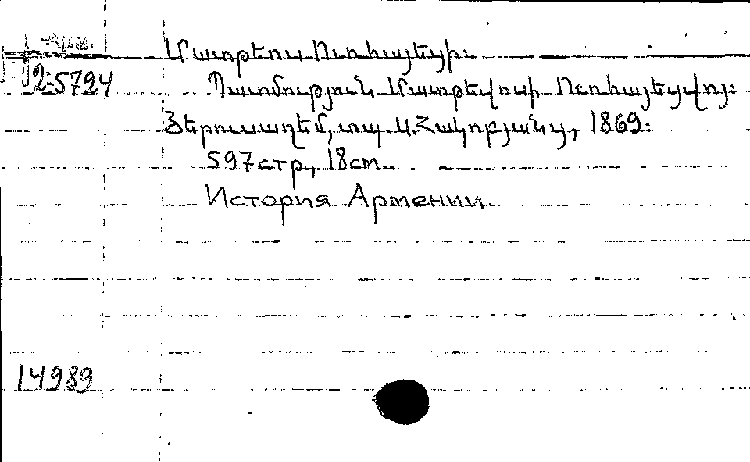 Մատթեոս Ուռհայեցի։
2-5794
Պատմություն Մատթեվոսի Ուռհայեցվոյ։
Յերուսաղեմ, տպ. Ս. Հակոբյանց, 1869։
597 стр, 18 cm.
История Армении.
14989